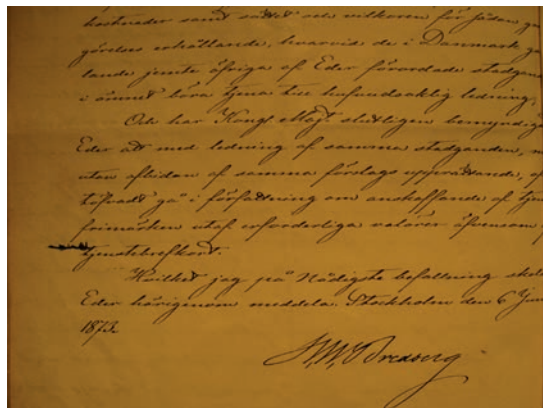 kostnader samt sättet och vilkoren för sådan
görelses erhållande, hvarvid de i Danmark
lande jemte öfriga af Eder förordade
i ämnet böra tjena till hufvudsaklig ledning,
Och har Kongl Majt slutligen
Eder att med ledning af samma stadganden,
utan afbidan af samma förslags upprättande,
töfvadt gå i författning om anskaffande af
frimärken utaf erforderliga valörer äfvensom
tjenstebrefkort.
Hvilket jag på Nådigste befallning
Eder härigenom meddela. Stockholm den 6
1873.